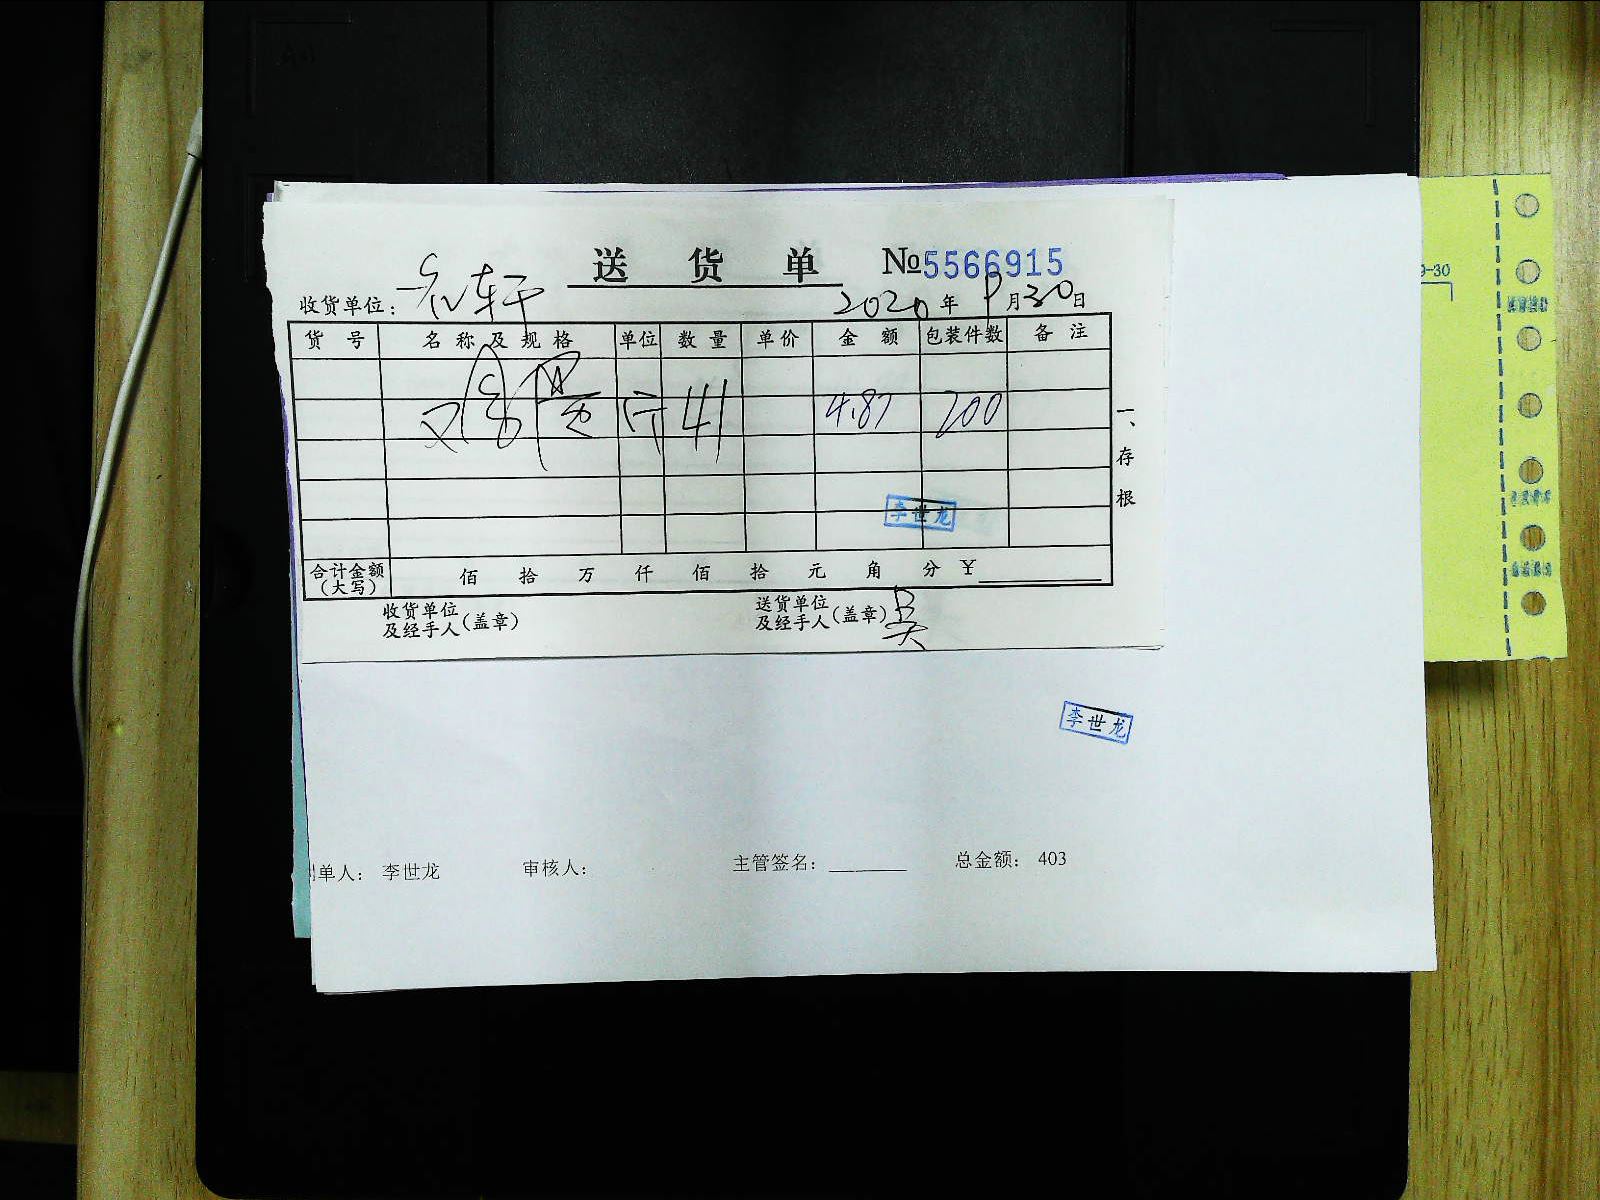 送 货 单 №5566915
收货单位: 2020 年 9 月 30 日
9-30
货 号 名 称 及 规 格 单位 数 量 单 价 金 额 包装件数 备 注
斤 41 4.87 200
一、存根
李世龙
合计金额(大写) 佰 拾 万 仟 佰 拾 元 角 分 ¥
收货单位及经手人(盖章) 送货单位及经手人(盖章)
李世龙
制单人: 李世龙 审核人: 主管签名: 总金额: 403